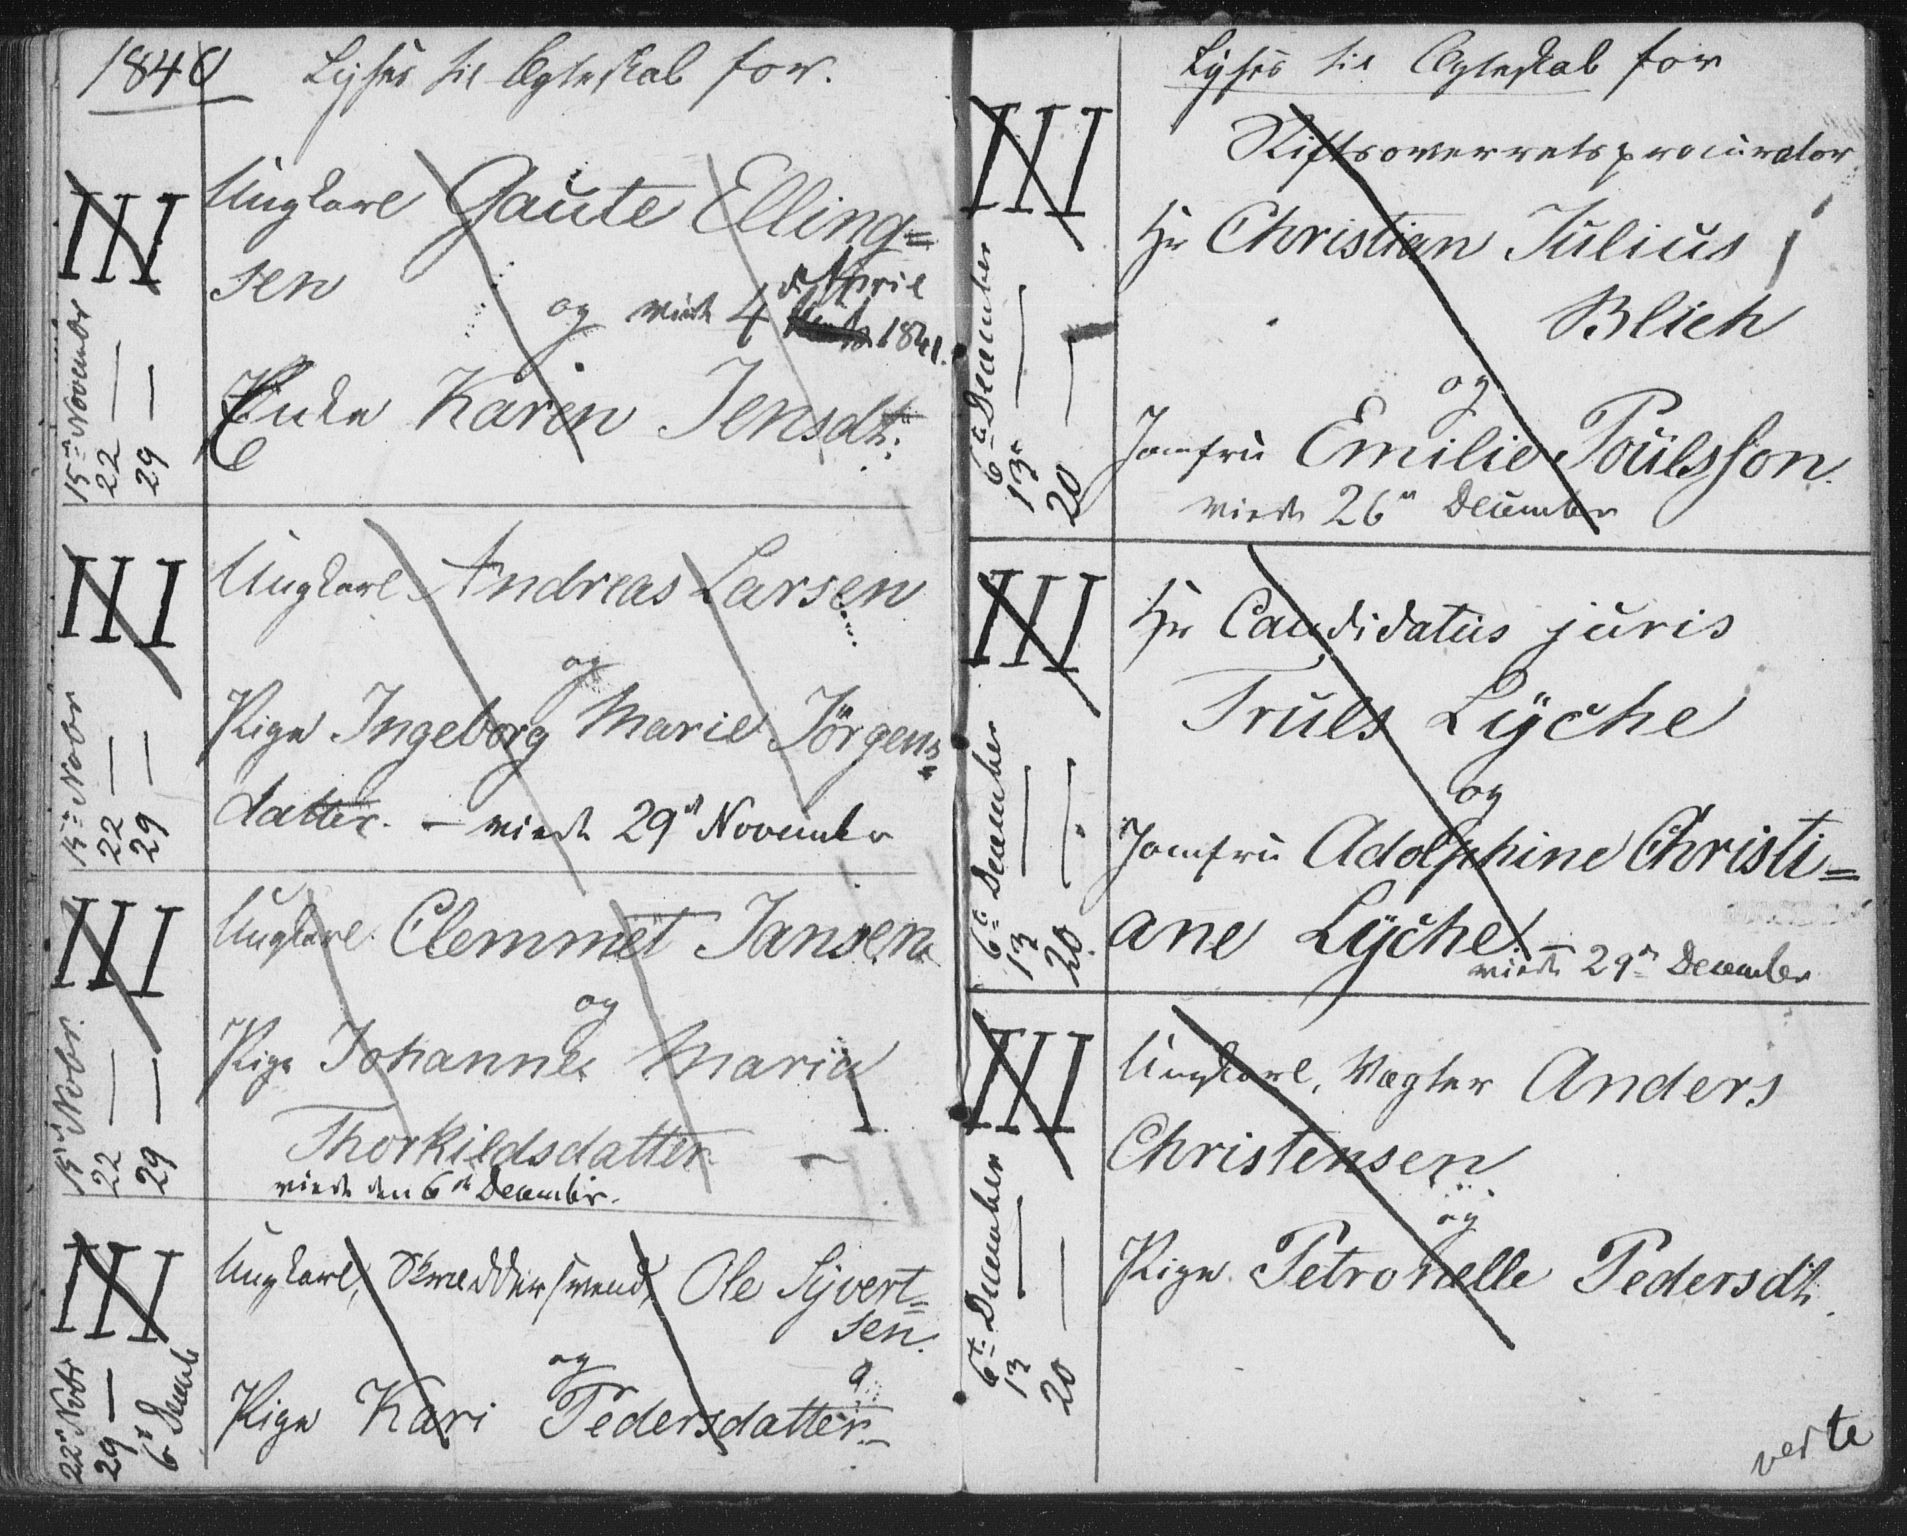 1840 Lyses til Ægteskab for.
III
15de November
22 —
29 —
Ungkarl Gaute Elling=
sen
og viede 4 de April
1841.
Enke Karen Jensdt.
III
15de Novbr
22 —
29 —
Ungkarl Andreas Larsen
og
Pige Ingeborg Marie Jörgens=
datter. — viede 29de November
III
15de Novbr.
22 —
29 —
Ungkarl Clemmet Jansen
og
Pige Johanne Maria
Thorkildsdatter —
viede den 6te December.
III
22de Novbr
29 —
6te Decemb
Ungkarl, Skræddersvend, Ole Syvert=
sen.
og
Pige Kari Pedersdatter
Lyses til Ægteskab for
III
6te December
13de —
20 —
Stiftsoverretsprocurator
Hr Christian Julius
Blich
og
Jomfru Emilie Poulsson.
viede 26de December
III
6te December
13 —
20. —
Hr Candidatus juris
Truls Lyche
og
Jomfru Adolphine Christi=
ane Lyche.
viede 29de December
III
6te December
13 —
20 —
Ungkarl, Vægter Anders
Christensen
og
Pige Petronelle Pedersdt.
verte